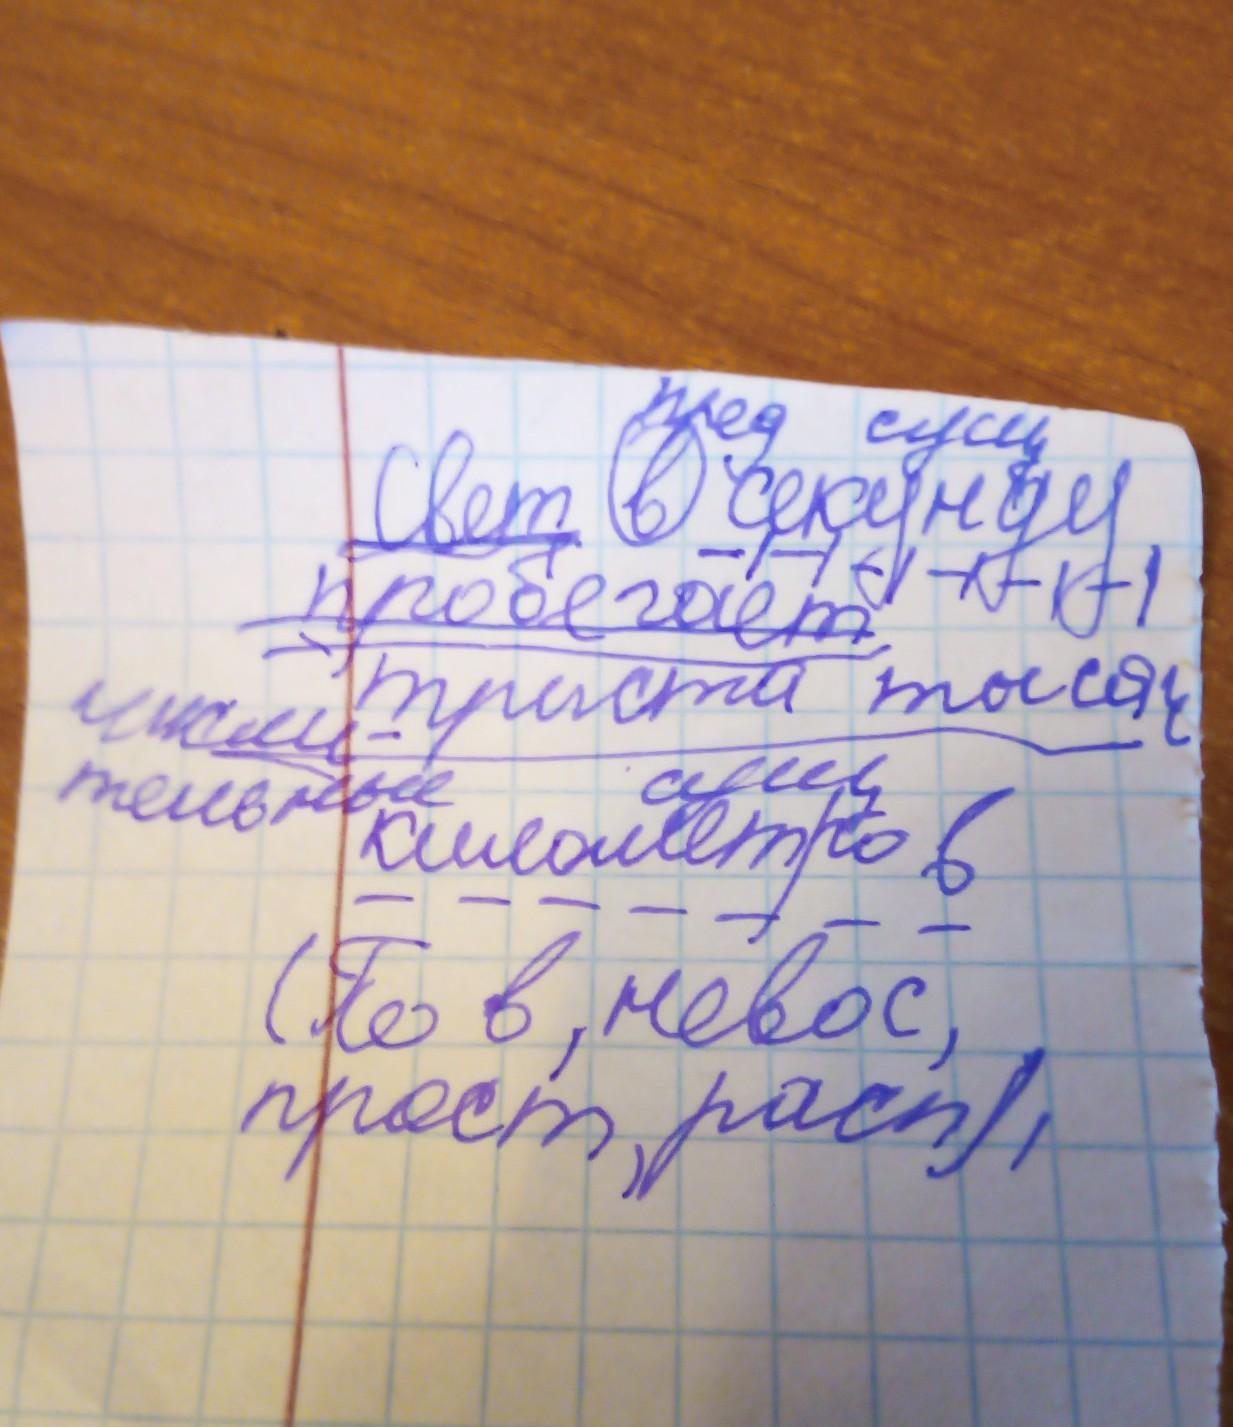 пред сущ
Свет в секунду
пробегает
триста тысяч
числи-
тельные сущ
километров
(Пов, невос,
прост, расп),